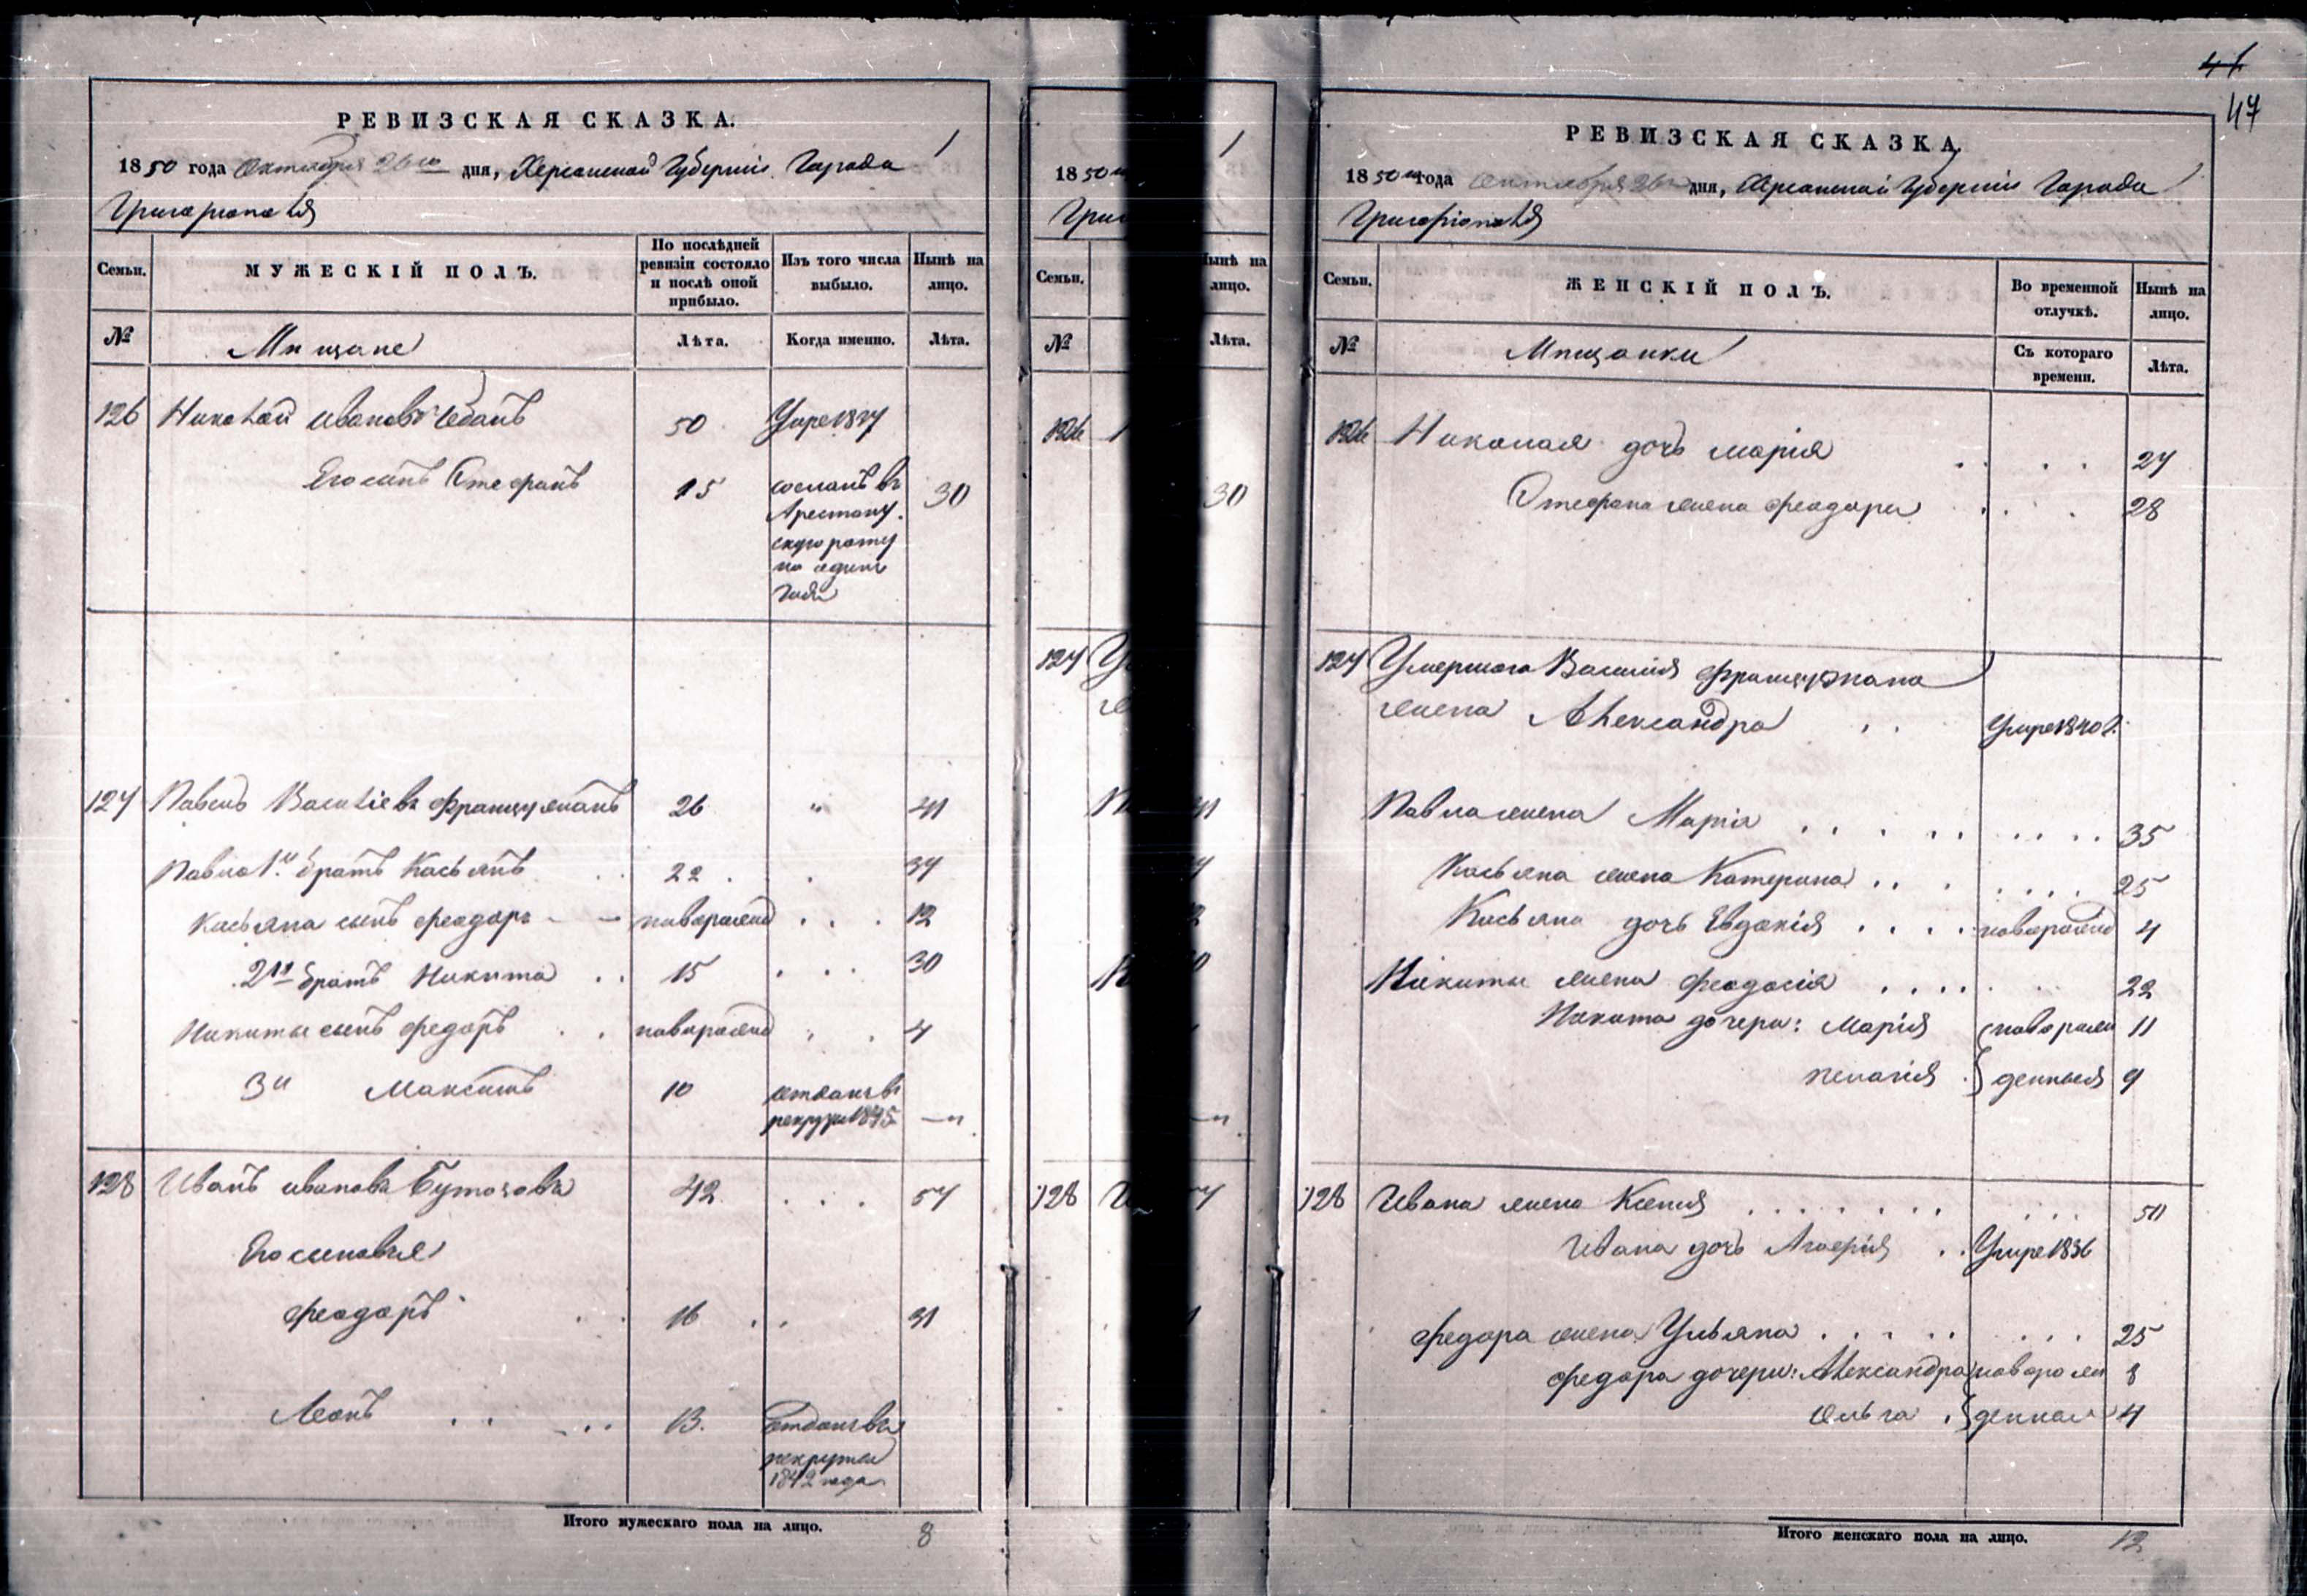 РЕВИЗСКАЯ СКАЗКА.
1850 года Октября 26го дня, Херсонской Губерніи Города 1
Григоріополя
Семьи. МУЖЕСКІЙ ПОЛЪ. По послѣдней ревизіи состояло и послѣ оной прибыло. Изъ того числа выбыло. Нынѣ на лицо.
№ Мѣщане Лѣта. Когда именно. Лѣта.
126 Николай Ивановъ 50 Умре 18
Его сынъ Стефанъ 15 сосланъ въ 30
Арестант.
скую роту
на одинъ
годъ
127 Павелъ Василіевъ Французанъ 26 " 41
Павла 1й братъ Касьянъ 22 37
Касьяна сынъ Феодоръ новорожд 12
2й братъ Никита 15 30
Никиты сынъ Федоръ новорожд 4
3й Максимъ 10 отданъ въ
рекруты 1845 —"
128 Иванъ Ивановъ 42 57
Его сыновья
Феодоръ 16 31
Леонъ 13. Отданъ въ
рекруты
1842 года
Итого мужескаго пола на лицо. 8
1
1850
Григ
Семьи. Нынѣ на лицо.
№ Лѣта.
126 30
127 У
128
47
РЕВИЗСКАЯ СКАЗКА
1850 года Октября 26 дня, Херсонской Губерніи Города
Григоріополя
Семьи. ЖЕНСКІЙ ПОЛЪ. Во временной отлучкѣ. Нынѣ на лицо.
№ Мѣщанки Съ котораго времени. Лѣта.
126 Николая дочь Марія 27
Стефана жена Феодора 28
127 Умершаго Василія Французана
жена Александра Умре 1840 г.
Павла жена Марія 35
Касьяна жена Катерина 25
Касьяна дочь Евдокія новорожд 4
Никиты жена Феодосія 22
Никита дочери: Марія новорож 11
Пелагія денныя 9
128 Ивана жена Ксенія 50
Ивана дочь Умре 1836
Федора жена Ульяна 25
Федора дочери: Александра новорож 8
Ольга денная 4
Итого женскаго пола на лицо. 12